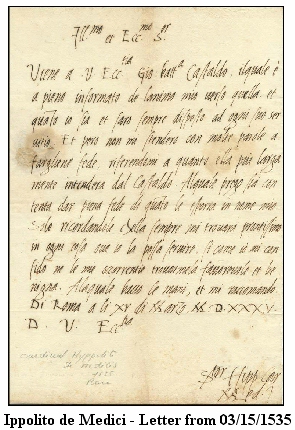 Ill.mo et Ecc.mo S.or
Viene a V. Ecc.tia Gio. batt.a Castaldo, ilquale è
a pieno informato de l'animo mio verso quella, et
quanto io sia et saro sempre disposto ad ogni suo ser
vitio, Et però non mi stenderò con molte parole a
fargliene fede, riferendomi a quanto ella più larga
mente intenderà dal Castaldo. Alquale prego sia con
tenta dar piena fede di quanto le esporrà in nome mio
Solo ricordandole che sempre mi trovarà prontissimo
in ogni cosa que io la possa servire. Si come io mi con
fido ne le mie occorrentie trovarmela favorevole et be
nigna. Alaquale bascio le mani, et mi raccomando
Di Roma a li XV di Marzo M. D. XXXV.
D. V. Ecc.tia
Cardinal Hippolito
de Medicis
1535
Ippolito de Medici - Letter from 03/15/1535